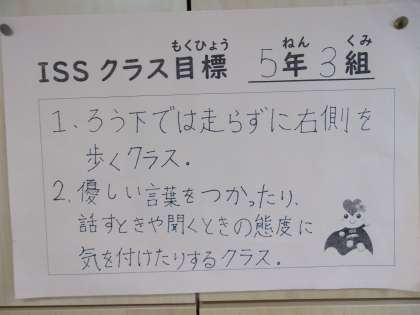 もくひょう ねん くみ
ISS クラス目標 5年 3組
1. ろう下では走らずに右側を
歩くクラス.
2. 優しい言葉をつかったり、
話すときや聞くときの態度に
気を付けたりするクラス.